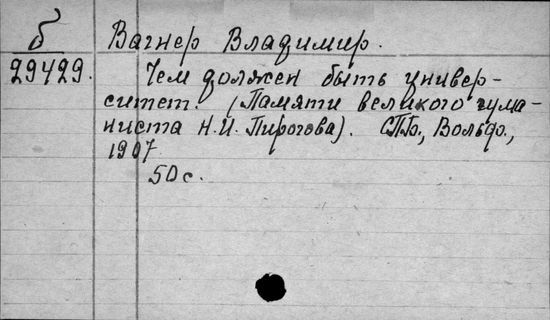 б Вагнер Владимир.
29429. Чем должен быть универ-
ситет. (Памяти великого гума-
ниста Н.И. Пирогова). СПб., Вольф.,
1907
50 с.